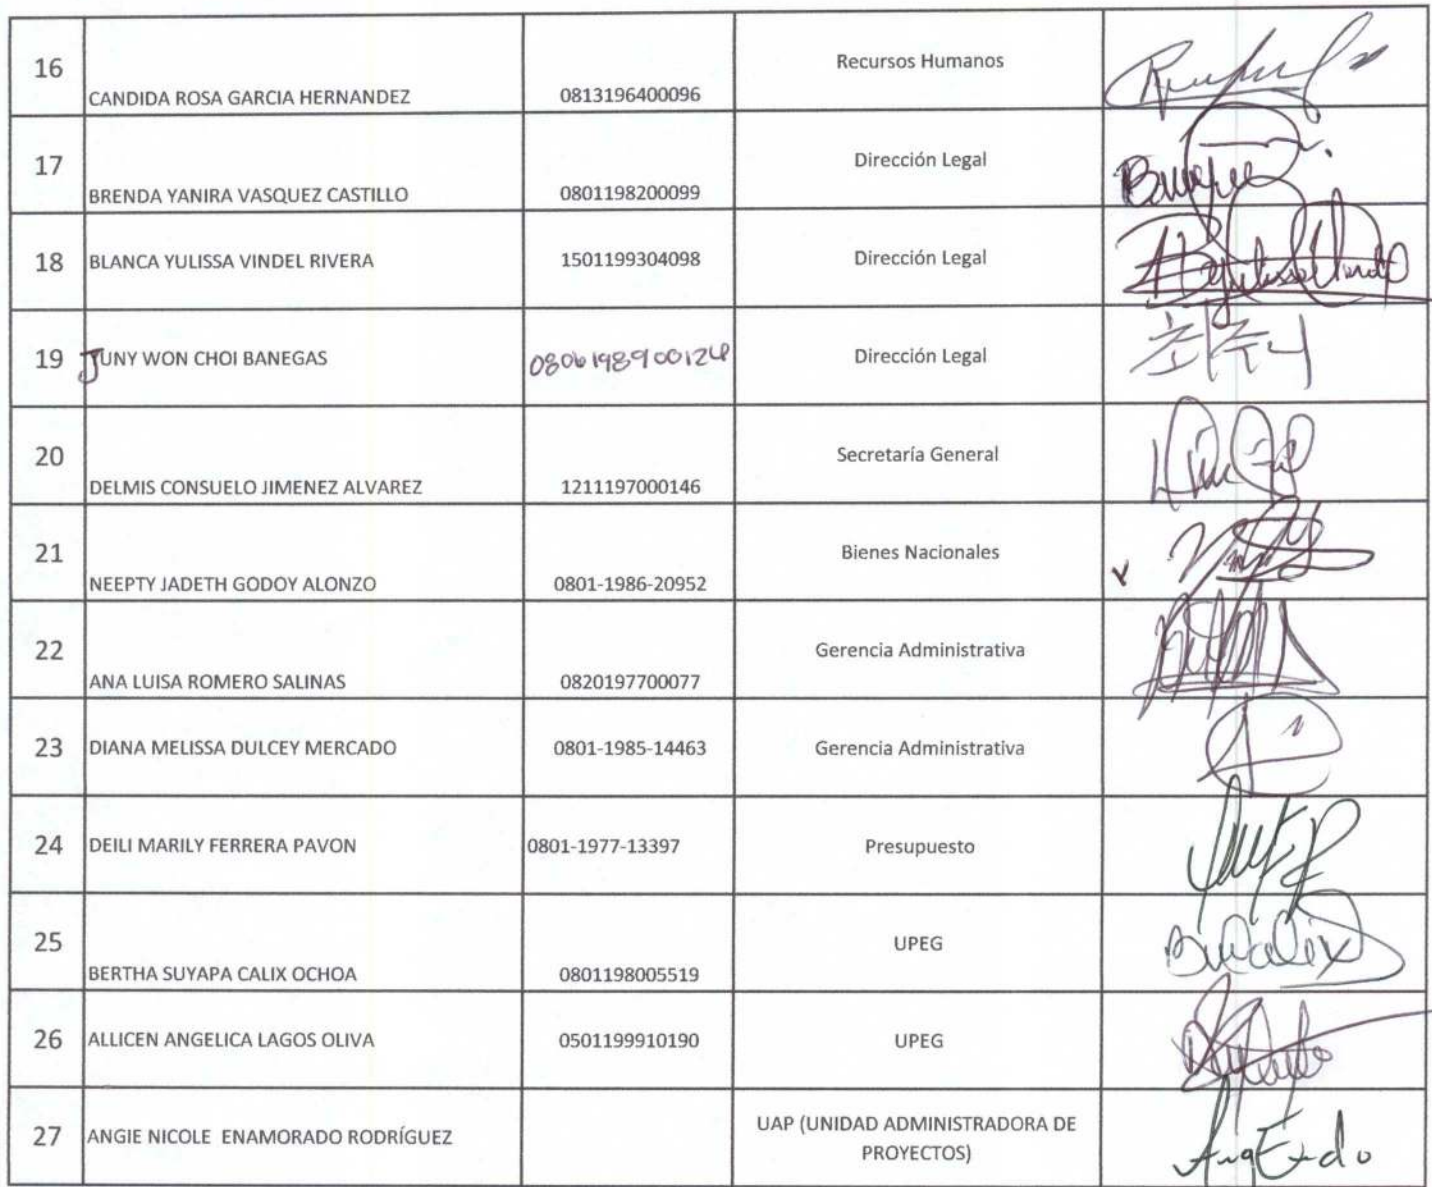 16 CANDIDA ROSA GARCIA HERNANDEZ 0813196400096 Recursos Humanos
17 BRENDA YANIRA VASQUEZ CASTILLO 0801198200099 Dirección Legal
18 BLANCA YULISSA VINDEL RIVERA 1501199304098 Dirección Legal
19 JUNY WON CHOI BANEGAS Dirección Legal 최주니
20 DELMIS CONSUELO JIMENEZ ALVAREZ 1211197000146 Secretaría General
21 NEEPTY JADETH GODOY ALONZO 0801-1986-20952 Bienes Nacionales
22 ANA LUISA ROMERO SALINAS 0820197700077 Gerencia Administrativa
23 DIANA MELISSA DULCEY MERCADO 0801-1985-14463 Gerencia Administrativa
24 DEILI MARILY FERRERA PAVON 0801-1977-13397 Presupuesto
25 BERTHA SUYAPA CALIX OCHOA 0801198005519 UPEG
26 ALLICEN ANGELICA LAGOS OLIVA 0501199910190 UPEG
27 ANGIE NICOLE ENAMORADO RODRÍGUEZ UAP (UNIDAD ADMINISTRADORA DE
PROYECTOS)